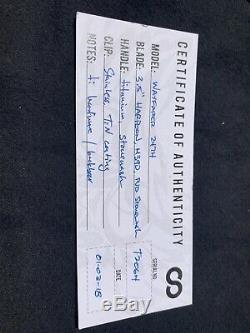 CERTIFICATE OF AUTHENTICITY
MODEL: WAYFARER 247H
BLADE: 3.5" HARPOON, M390, PVD Stonewash
HANDLE: titanium, stonewash
CLIP: Stainless, TiN coating
NOTES: ti hardware / backspacer
SERIAL NO. T2064
DATE 01-02-18